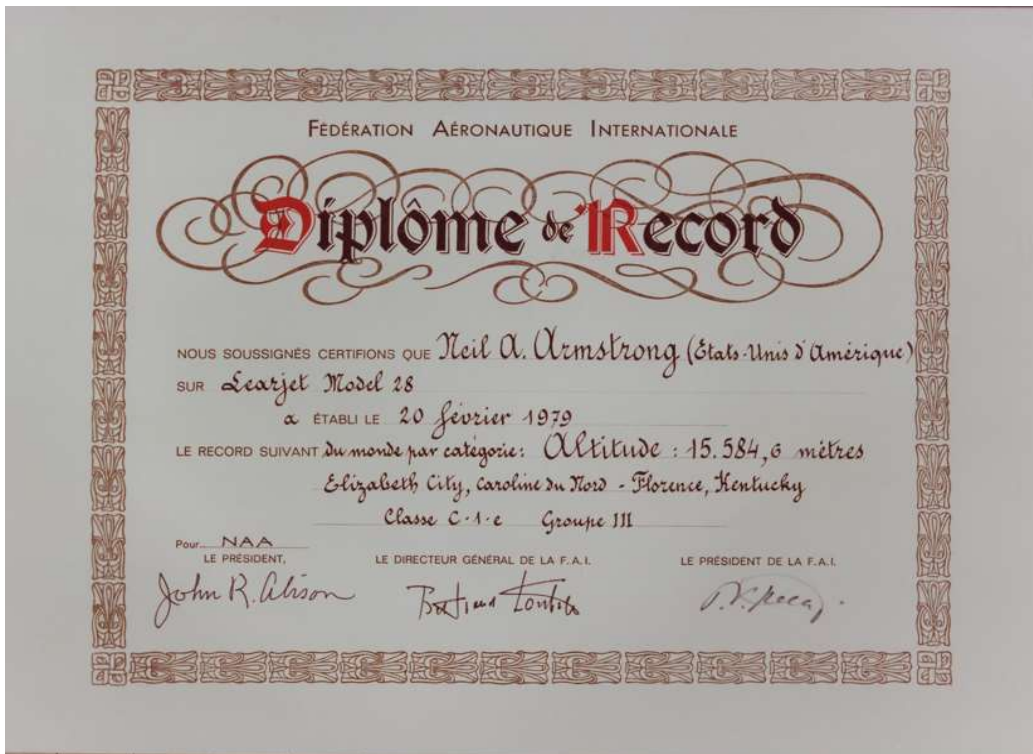 FÉDÉRATION AÉRONAUTIQUE INTERNATIONALE
Diplôme de Record
NOUS SOUSSIGNÉS CERTIFIONS QUE Neil A. Armstrong (États-Unis d'Amérique)
SUR Learjet Model 28
a ÉTABLI LE 20 février 1979
LE RECORD SUIVANT du monde par catégorie: Altitude : 15.584,6 mètres
Elizabeth City, Caroline du Nord - Florence, Kentucky
Classe C-1-e Groupe III
Pour NAA
LE PRÉSIDENT, LE DIRECTEUR GÉNÉRAL DE LA F.A.I. LE PRÉSIDENT DE LA F.A.I.
John R. Alison